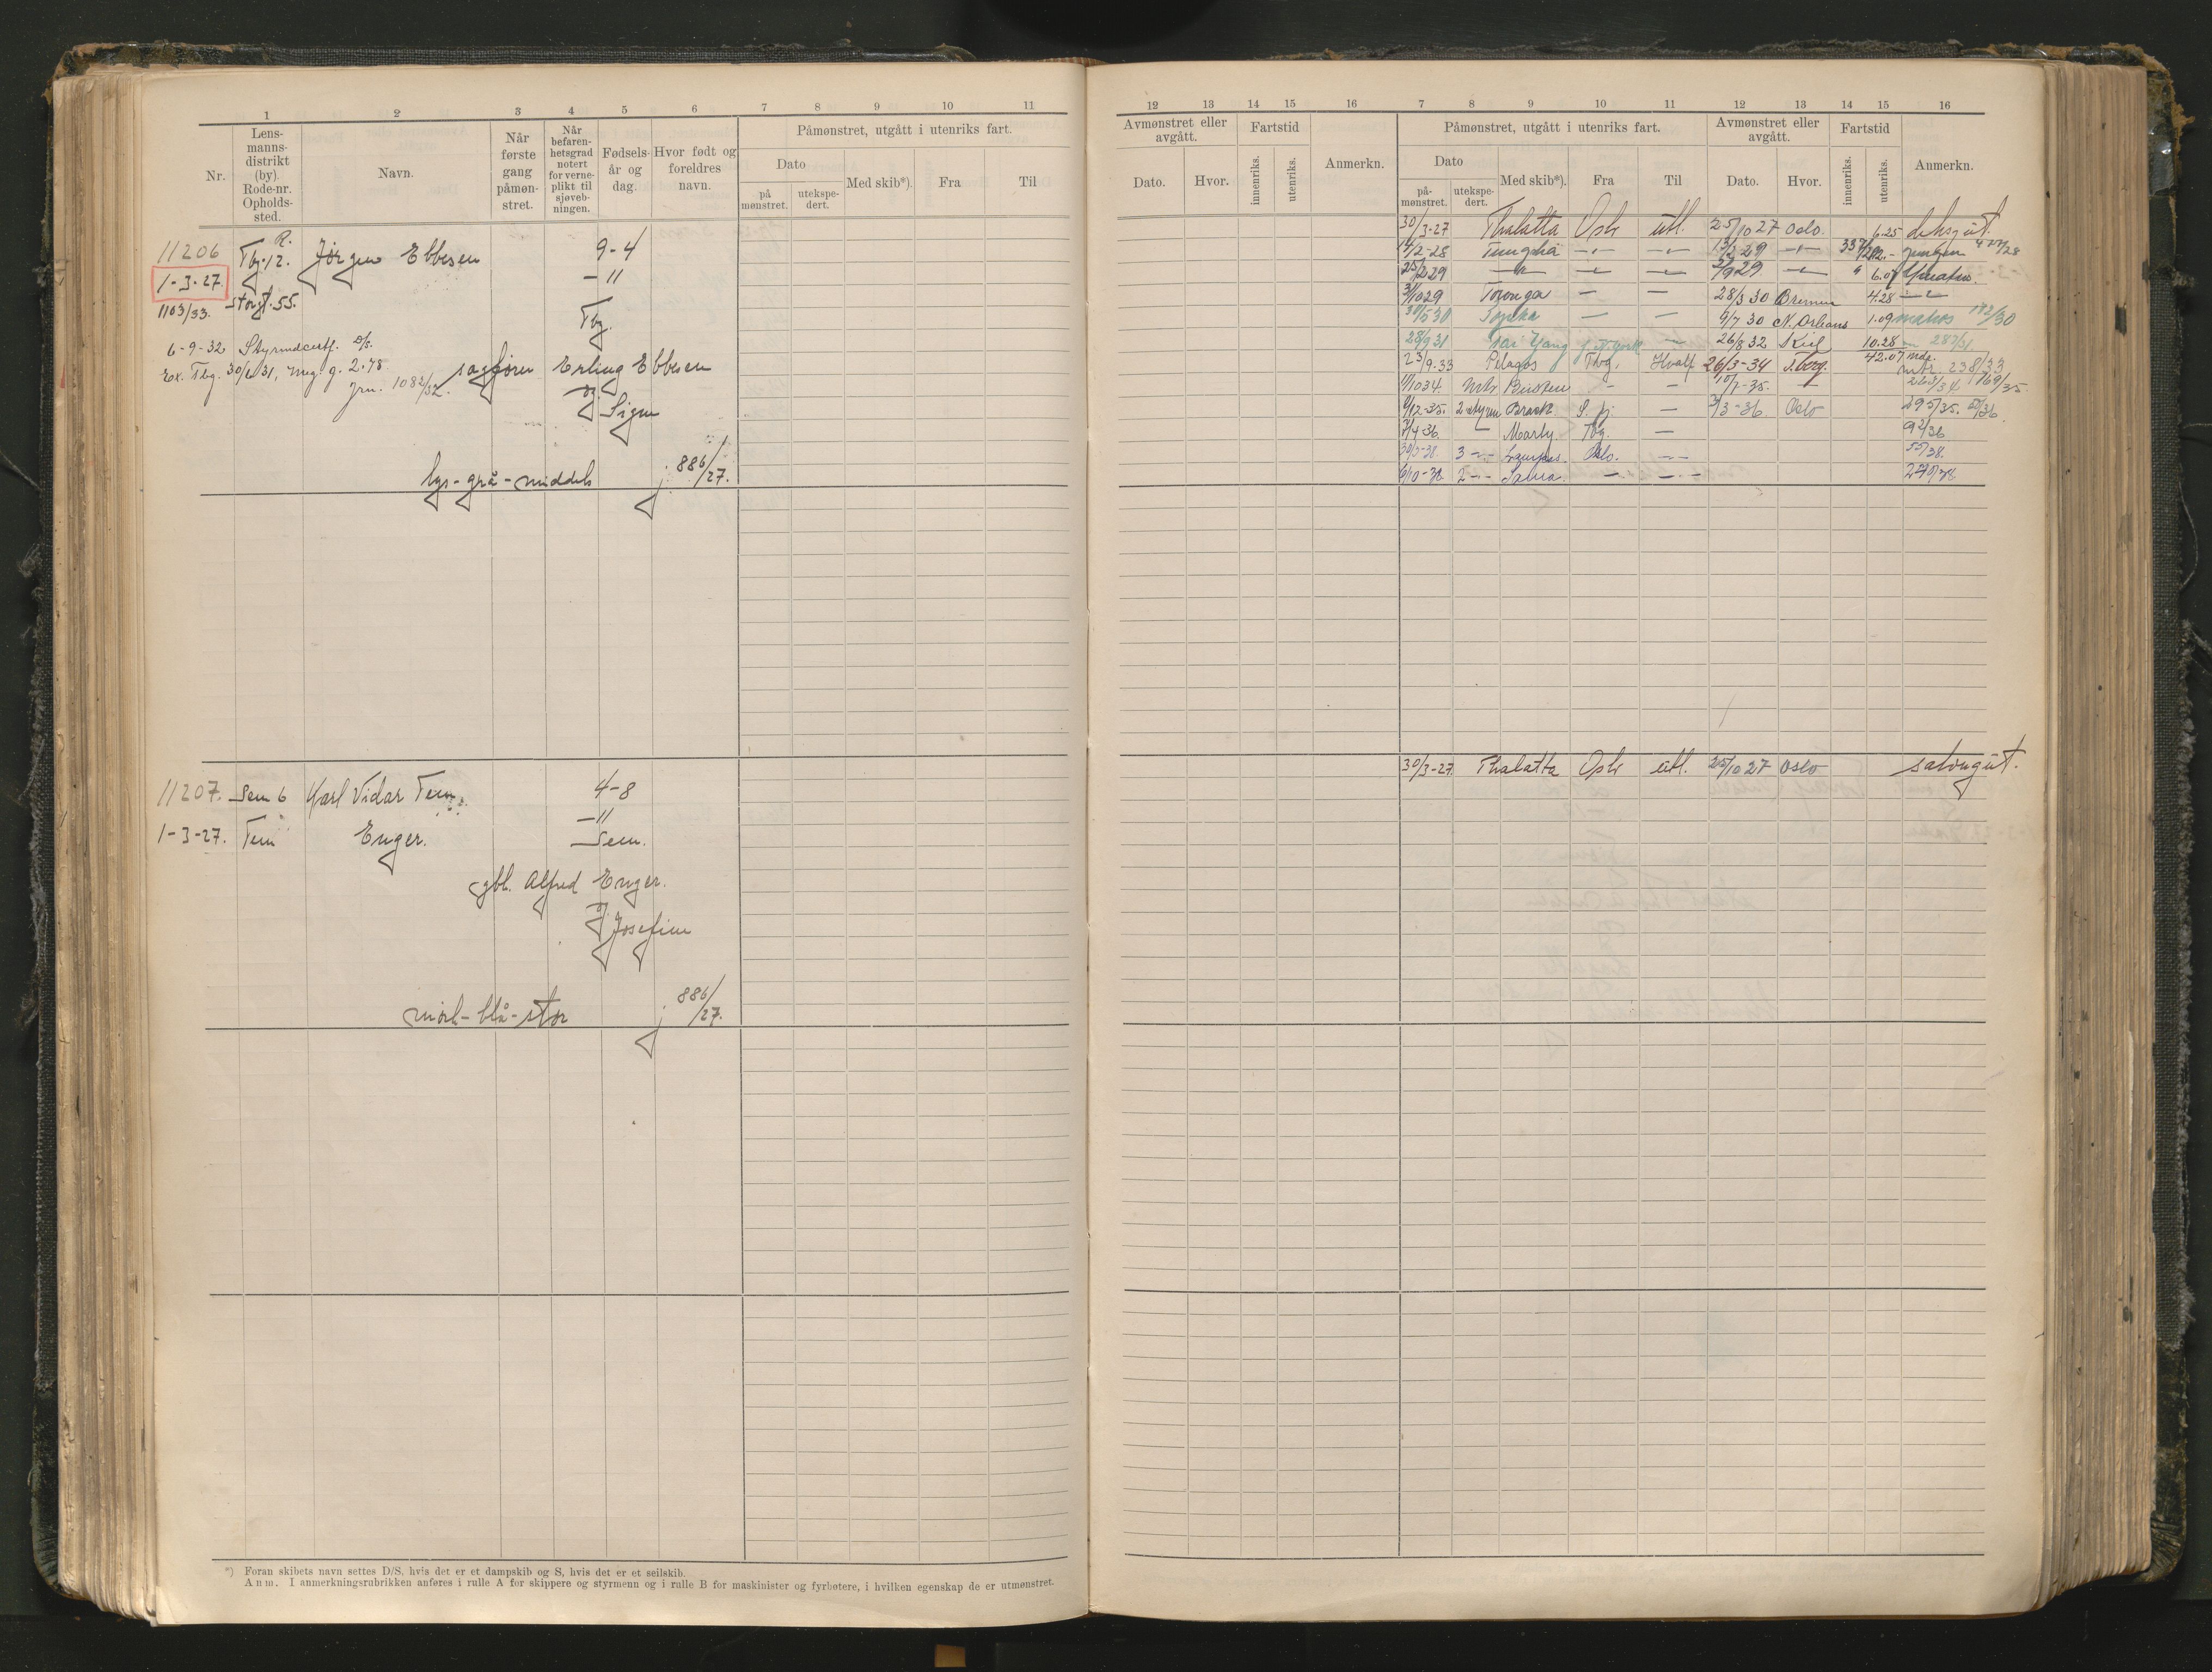 1 2 3 4 5 6 7 8 9 10 11
Nr.
Lens-
manns-
distrikt
(by).
Rode-nr.
Opholds-
sted.
Navn.
Når
første
gang
påmøn-
stret.
Når
befaren-
hetsgrad
notert
for verne-
plikt til
sjøveb-
ningen.
Fødsels-
år og
dag.
Hvor født og
foreldres
navn.
Påmønstret, utgått i utenriks fart.
Dato
på
mønstret.
utekspe-
dert.
Med skib*).
Fra
Til
11206 Tbg. 12. R. Jørgen Ebbesen 9-4
1-3-27. -11
1103/33. Storgt. 55. Tbg.
6-9-32 Styrmdcertf. D/S.
Ex. Tbg. 30/6 31, 2.78 sagfører Erling Ebbesen
Jrn. 1082/32. og Signe
lys-grå-middels j. 886/27.
11207. Sem 6 Karl Vidar Tem 4-8
1-3-27. Tem Enger. -11
Sem.
gbr. Alfred Enger.
og Josefine
mørk-blå-stor j. 886/27.
*) Foran skibets navn settes D/S, hvis det er et dampskib og S, hvis det er et seilskib.
Anm. I anmerkningsrubrikken anføres i rulle A for skippere og styrmenn og i rulle B for maskinister og fyrbøtere, i hvilken egenskap de er utmønstret.
12 13 14 15 16 7 8 9 10 11 12 13 14 15 16
Avmønstret eller
avgått.
Dato.
Hvor.
Fartstid
innenriks.
utenriks.
Anmerkn.
Påmønstret, utgått i utenriks fart.
Dato
på-
mønstret.
utekspe-
dert.
Med skib*).
Fra
Til
Avmønstret eller
avgått.
Dato.
Hvor.
Fartstid
innenriks.
utenriks.
Anmerkn.
30/3-27 Thalatta Oslo utl. 25/10 27 Oslo. 6.25 deksgut.
14/2-28 Tungha -"- -"- 13/2 29 -"-
25/2 29 -"- -"- -"- 2/9 29 -"- 6.07 Matros.
3/10 29 Toronga - - 28/3 30 Bremen 4.28 -"-
30/5 30 Topeka - - 9/7 30 N. Orleans 1.09 matros 172/30
28/9 31 Tai Yang N. York - 26/8 32 Kiel 10.28 287/31
42.07 Mdr.
23/9.33 Pelagos Tbg. Hvalf 26/3-34 T.berg. mtr. 238/33
1/10 34. mtr. - - 10/7-35. - 263/34 169/35.
2 styrm - 3/3-36. Oslo 295/35. 50/36.
7/4-36. - Marly Tbg. - 92/36
3 -"- Oslo. -"- 55/38.
6/10-38 2 -"- Sama. -"- -"-
30/3-27. Thalatta Oslo utl. 25/10 27 Oslo salongut.